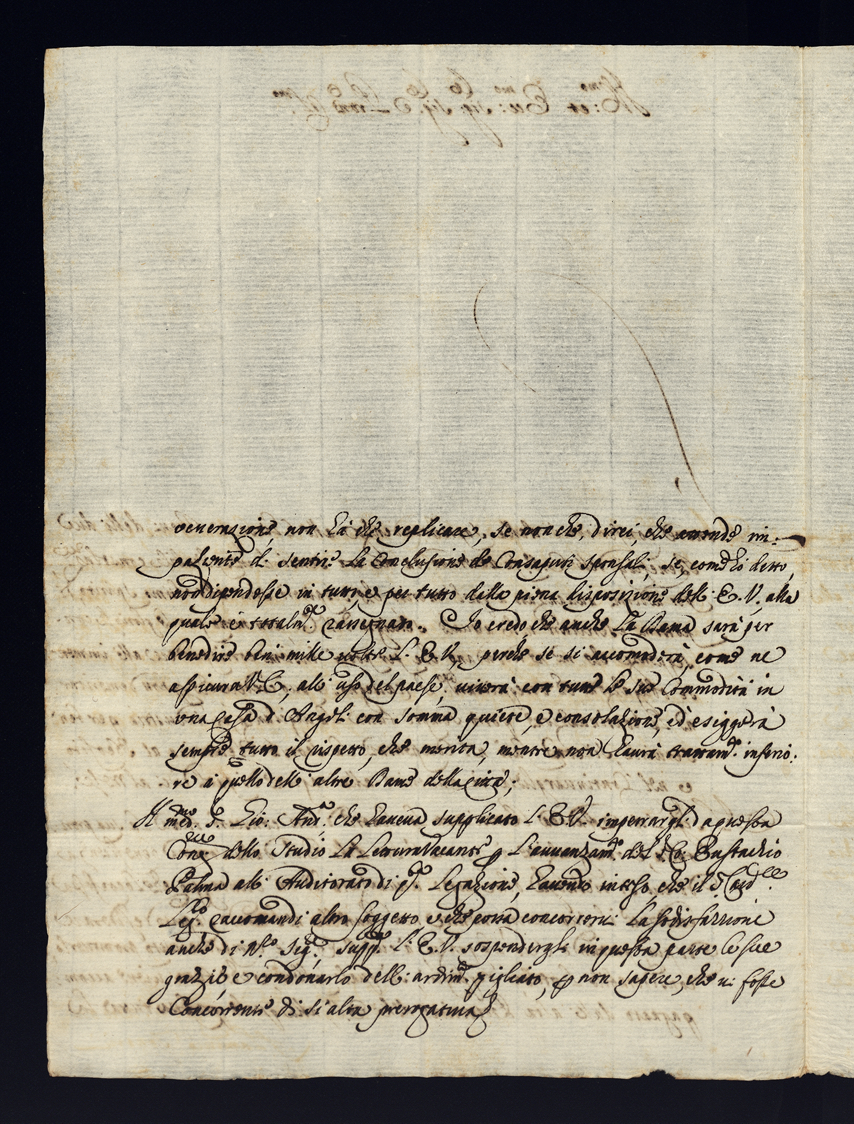 venerazione, non hà che replicare, se non che, direi, che avendo im-
paziente di sentire La Conclusione de Consaputi sponsali, se, come hò detto,
non dipendesse in tutto, e per tutto dalla piena disposizione dell' E. V., alla
quale è totalm.te rassegnato. Io credo che anche La Dama sarà per
benedire beni mille volte L' E. V., perche se si accomoderà, come ne
assicura V. E., all' uso del paese, viverà con tutte le sue Commodità in
una Casa d' Angeli con somma quiete, e consolazione, ed esiggerà
sempre tutto il rispetto, che merita, mentre non haurà trattam.to inferio-
re a quello dell' altre Dame della Città;
Il med.mo S. Gio: Ant.o che haueua supplicato L' E. V. impetrargli da questa
dello Studio La Lettura Vacante p L' auuanzam.to del S. Co: Eustachio
Palma all' Auditorato di q.ta Legazione, hauendo inteso che il S. Card.le
Leg.to raccomandi altro soggetto e che possa concorrerui La sodisfazzione
anche di N.ro Sig.re, supp.ca L' E. V. sospendergli in questa parte le sue
grazie e condonarlo dell' ardire pigliato, p non sapere, che ui fosse
Concorrente di sì alta prerogatiua